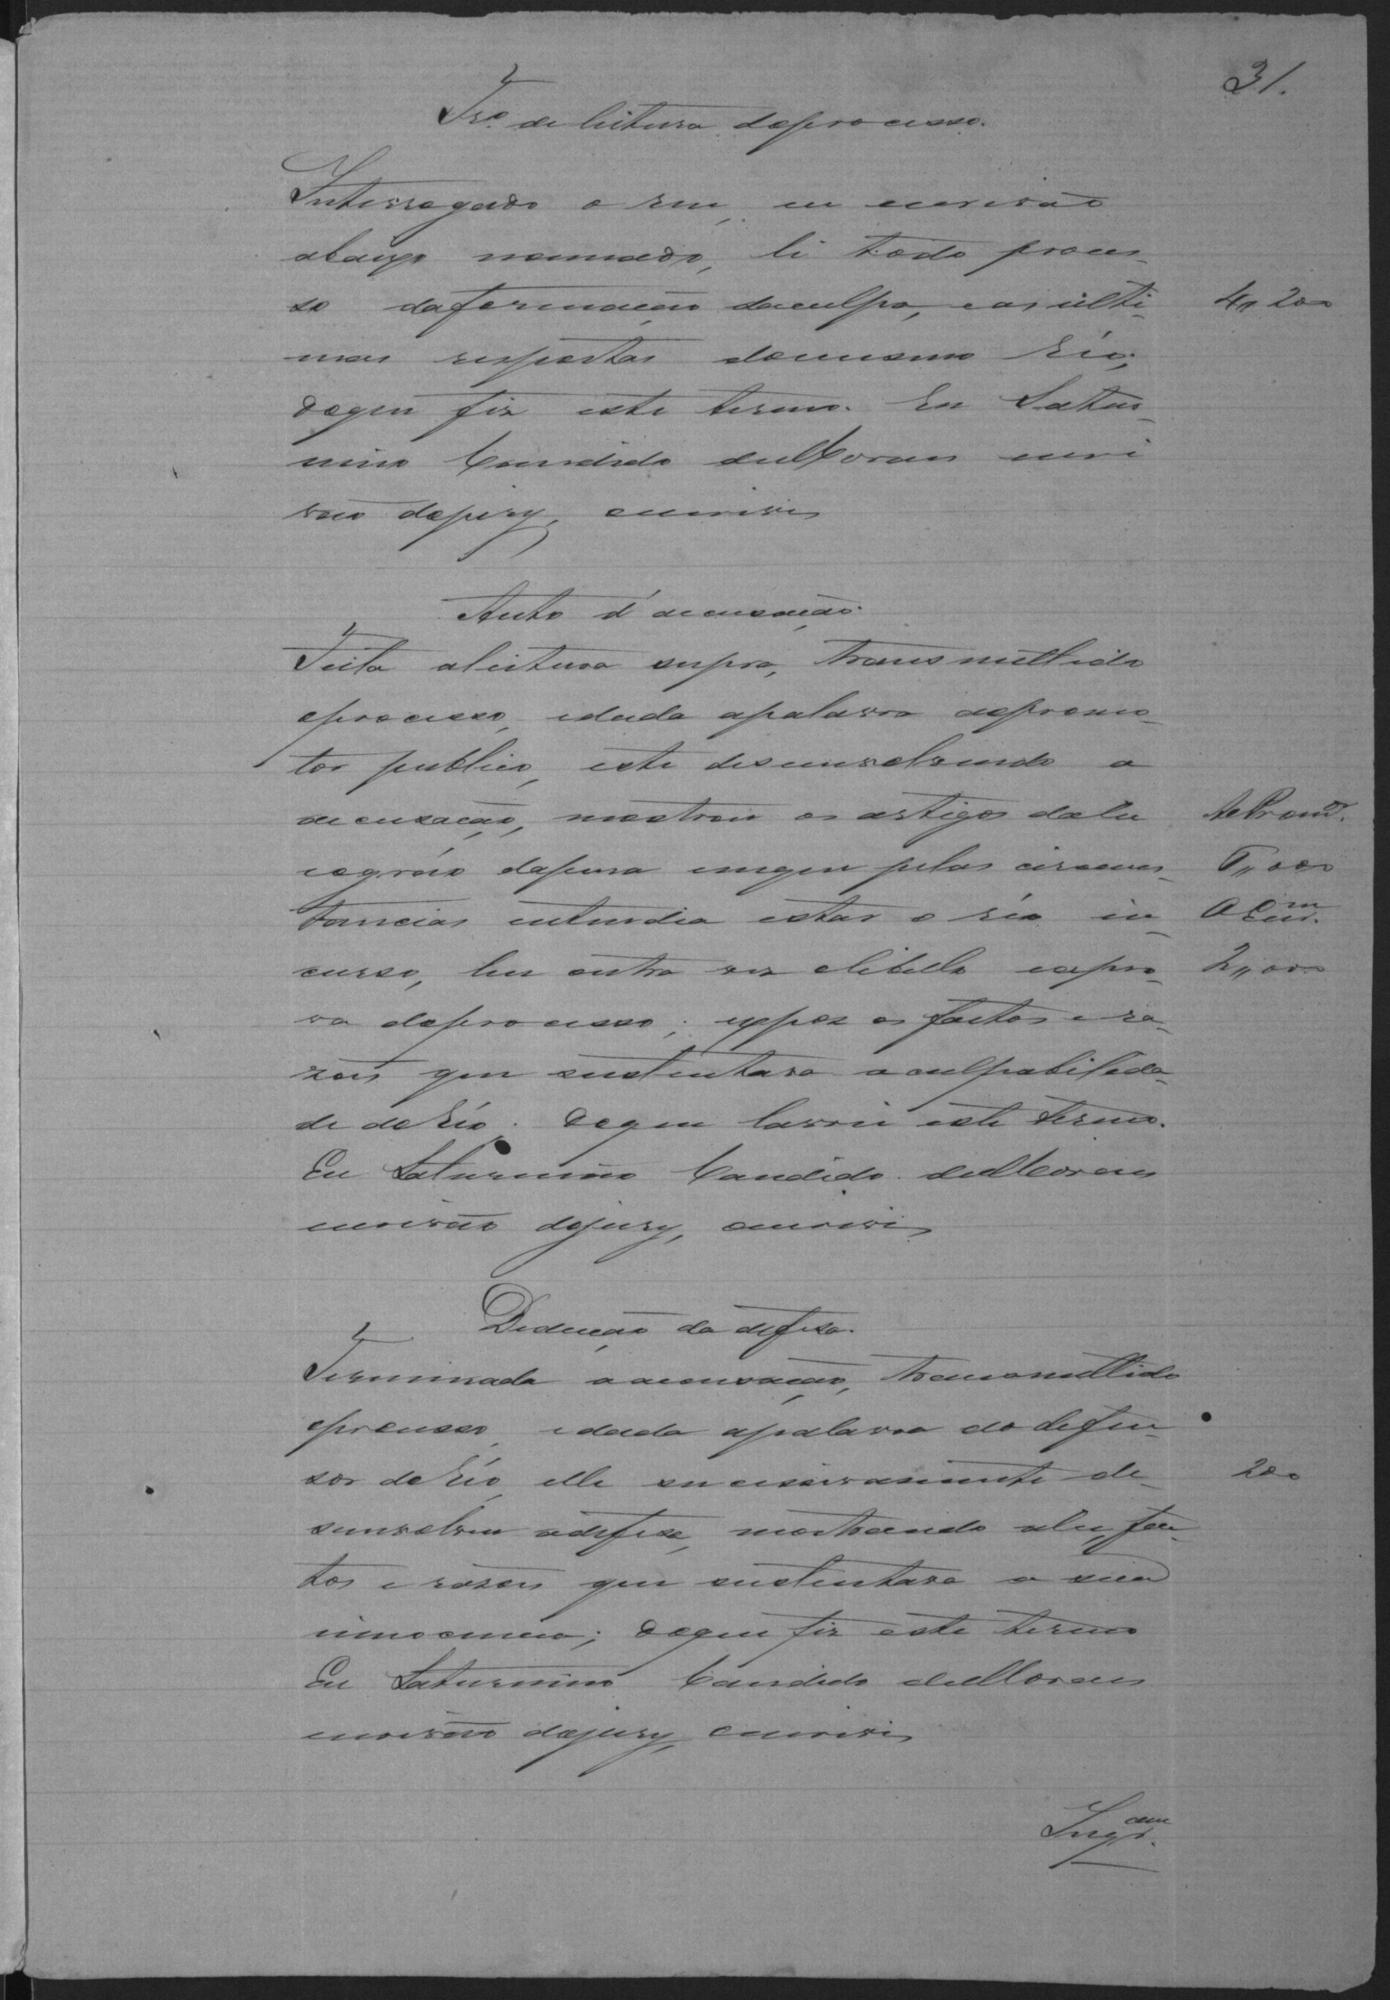 31.
Tr.º de leitura do processo.
Interrogado o reu, eu escrivão
abaixo nomeado, li todo proces-
so da formação da culpa, e as ulti- 4,,200
mas respostas do mesmo réo;
do que fiz este termo. Eu Satur-
nino Candido de Moraes escri
vão do jury, escrevi
Auto d'accusação.
Feita a leitura supra, transmittido
o processo, e dada a palavra ao promo-
tor publico, este desenvolvendo a
accusação, mostrou os artigos da lei Ao Prom.or
e o gráo da pena em que pelas circuns- ,,000
tancias entendia estar o réo in-
curso, leu outra vez o libello e a pro- 2,,000
va do processo; expoz os factos e ra-
zões que sustentava a culpabilida-
de do réo. Do que lavrei este termo.
Eu Saturnino Candido de Moraes
escrivão do jury, escrevi
Deducção da defesa.
Terminada a accusação, transmittido
o processo, e dada a palavra ao defen-
sor do réo, elle successivamente de- 200
senvolveu a defesa, mostrando a lei, fac-
tos e rasões que sustentava a sua
innocencia; do que fiz este termo
Eu Saturnino Candido de Moraes
escrivão do jury, escrevi